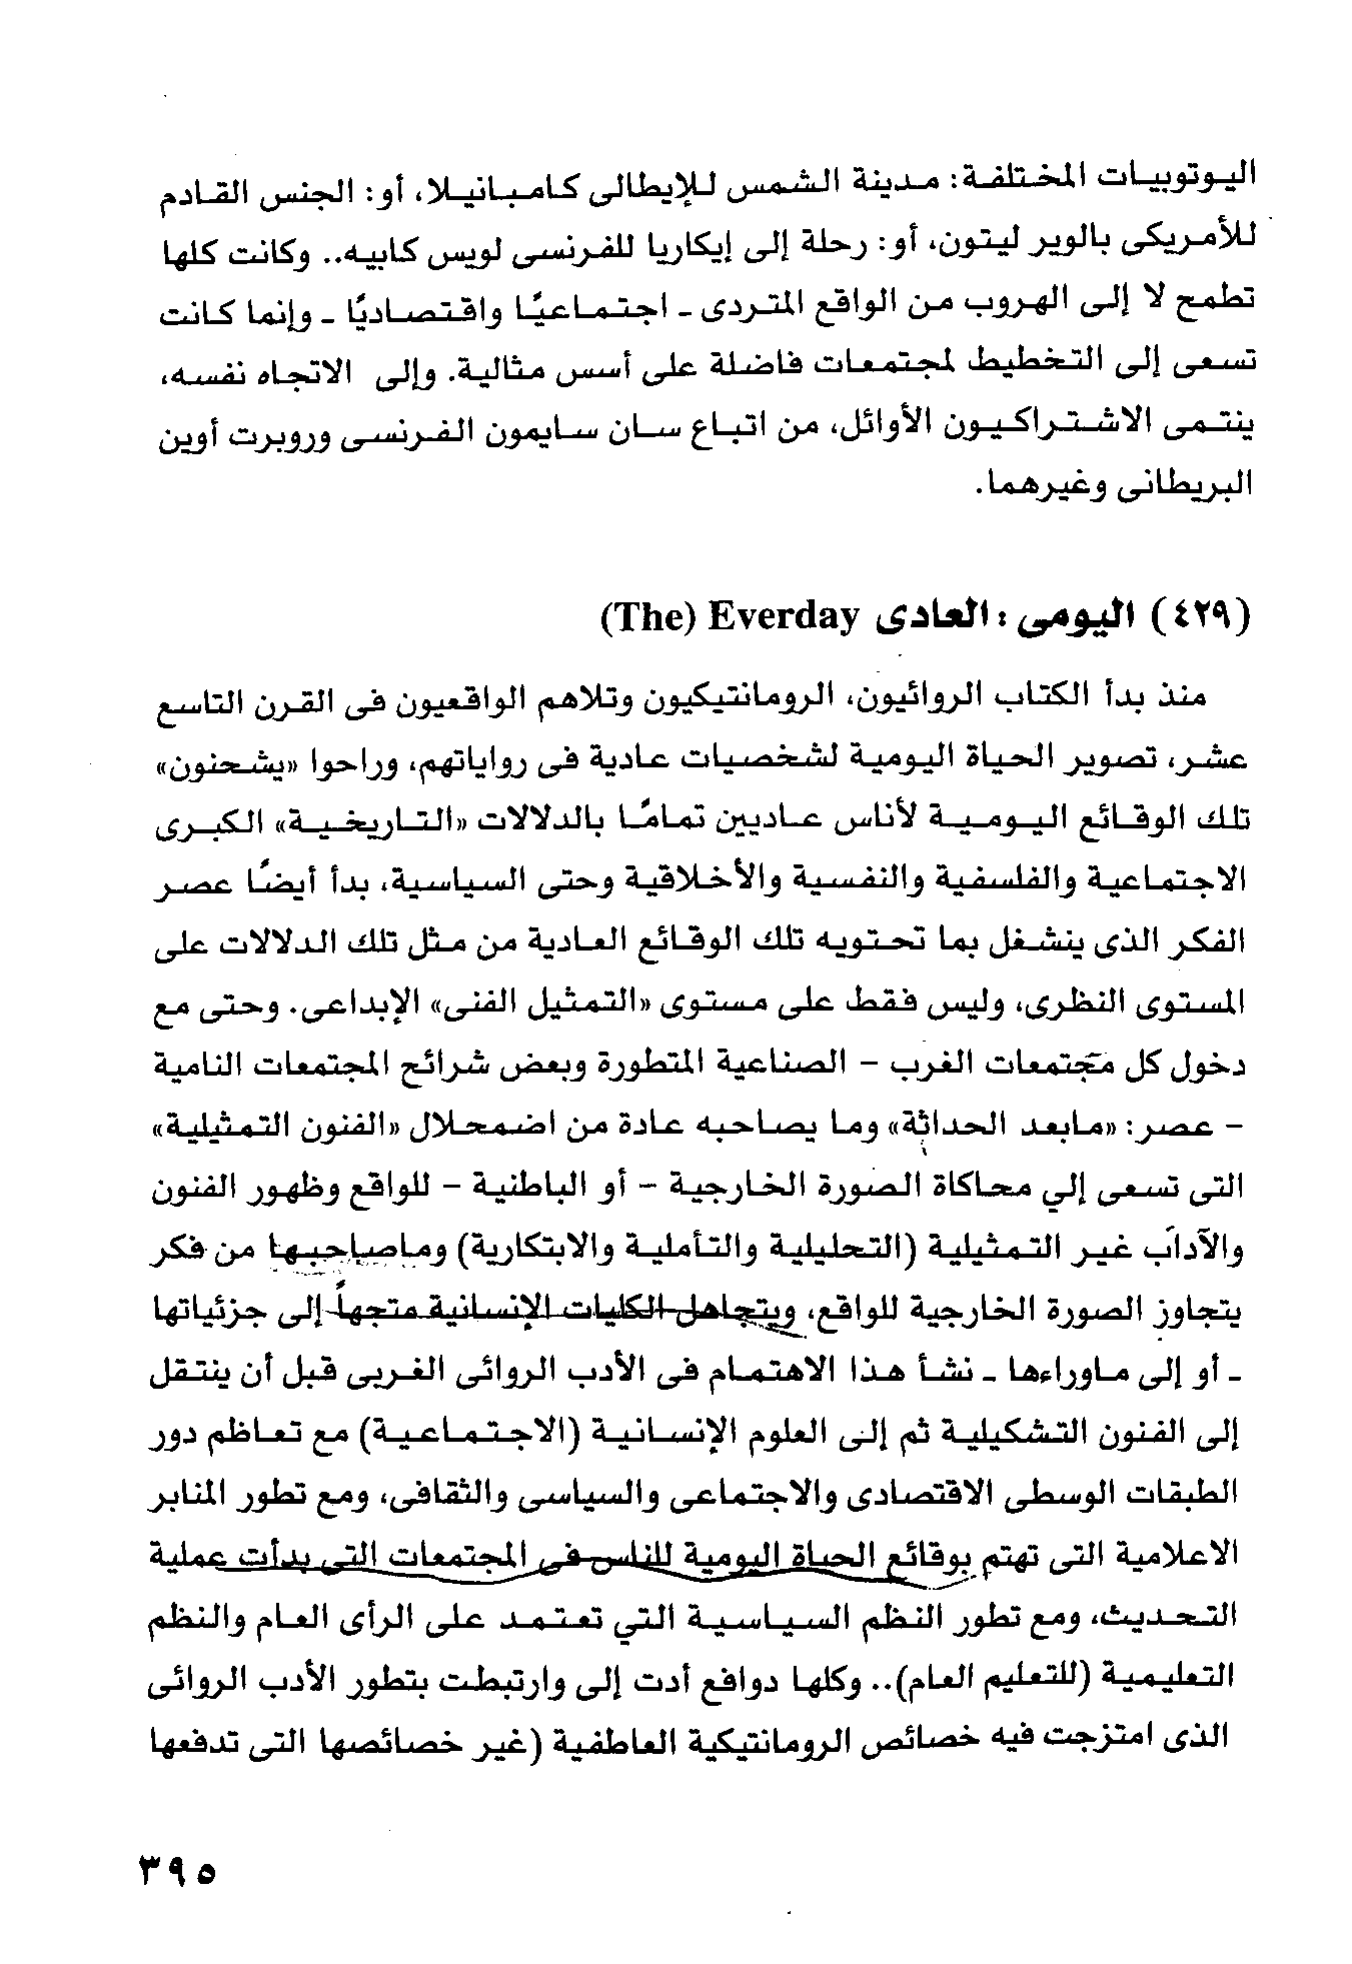 اليوتوبيات المختلفة: مدينة الشمس للإيطالى كامبانيلا، أو: الجنس القادم
للأمريكى بالوير ليتون، أو: رحلة إلى إيكاريا للفرنسى لويس كابيه.. وكانت كلها
تطمح لا إلى الهروب من الواقع المتردى ـ اجتماعيًا واقتصاديًا ـ وإنما كانت
تسعى إلى التخطيط لمجتمعات فاضلة على أسس مثالية. وإلى الاتجاه نفسه،
ينتمى الاشتراكيون الأوائل، من اتباع سان سايمون الفرنسى وروبرت أوين
البريطانى وغيرهما.
(٤٢٩) اليومى : العادى Everday (The)
منذ بدأ الكتاب الروائيون، الرومانتيكيون وتلاهم الواقعيون فى القرن التاسع
عشر، تصوير الحياة اليومية لشخصيات عادية فى رواياتهم، وراحوا «يشحنون»
تلك الوقائع اليومية لأناس عاديين تمامًا بالدلالات «التاريخية» الكبرى
الاجتماعية والفلسفية والنفسية والأخلاقية وحتى السياسية، بدأ أيضًا عصر
الفكر الذى ينشغل بما تحتويه تلك الوقائع العادية من مثل تلك الدلالات على
المستوى النظرى، وليس فقط على مستوى «التمثيل الفنى» الإبداعى. وحتى مع
دخول كل مجتمعات الغرب - الصناعية المتطورة وبعض شرائح المجتمعات النامية
- عصر: «مابعد الحداثة» وما يصاحبه عادة من اضمحلال «الفنون التمثيلية»
التى تسعى إلي محاكاة الصورة الخارجية - أو الباطنية - للواقع وظهور الفنون
والآداب غير التمثيلية (التحليلية والتأملية والابتكارية) وماصاحبها من فكر
يتجاوز الصورة الخارجية للواقع، ويتجاهل الكليات الإنسانية متجهاً إلى جزئياتها
ـ أو إلى ماوراءها ـ نشأ هذا الاهتمام فى الأدب الروائى الغربى قبل أن ينتقل
إلى الفنون التشكيلية ثم إلى العلوم الإنسانية (الاجتماعية) مع تعاظم دور
الطبقات الوسطى الاقتصادى والاجتماعى والسياسى والثقافى، ومع تطور المنابر
الاعلامية التى تهتم بوقائع الحياة اليومية للناس فى المجتمعات التى بدأت عملية
التحديث، ومع تطور النظم السياسية التي تعتمد على الرأى العام والنظم
التعليمية (للتعليم العام).. وكلها دوافع أدت إلى وارتبطت بتطور الأدب الروائى
الذى امتزجت فيه خصائص الرومانتيكية العاطفية (غير خصائصها التى تدفعها
٣٩٥